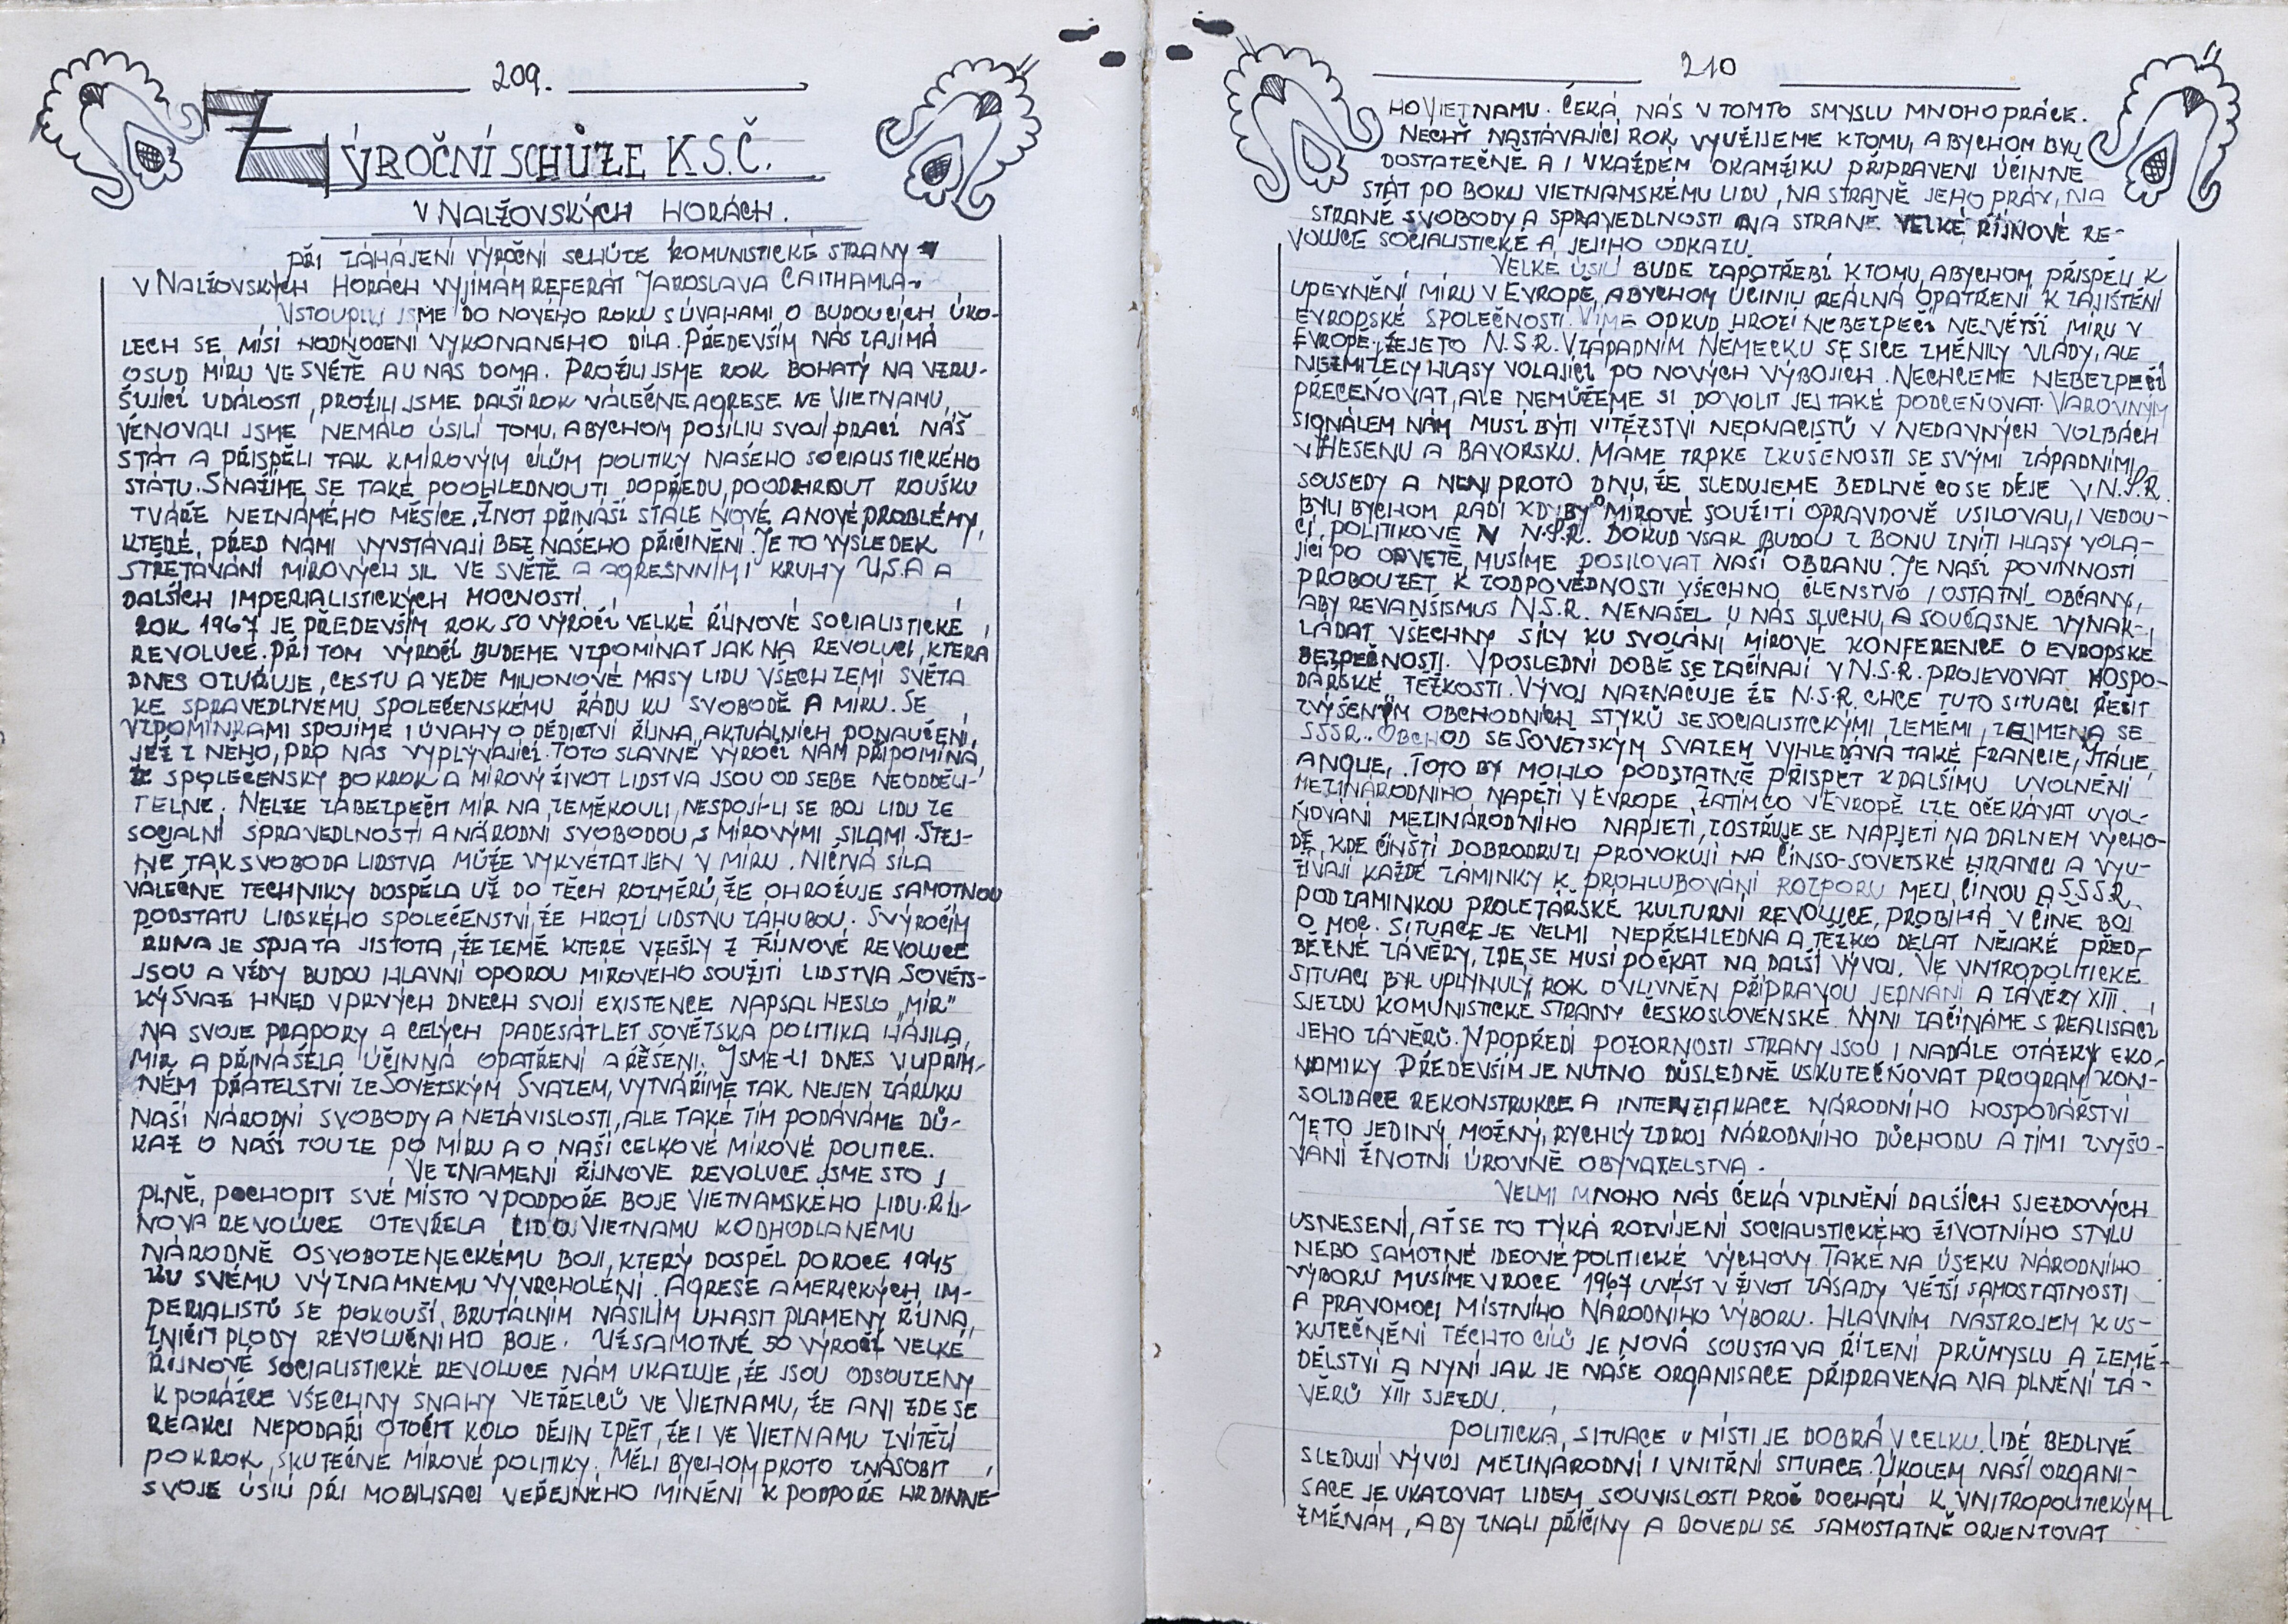 209.
VÝROČNÍ SCHŮZE K.S.Č.
V NALŽOVSKÝCH HORÁCH.
PŘI ZAHÁJENÍ VÝROČNÍ SCHŮZE KOMUNISTICKÉ STRANY
V NALŽOVSKÝCH HORÁCH VYJÍMÁM REFERÁT JAROSLAVA CAITHAMLA.
VSTOUPILI JSME DO NOVÉHO ROKU S ÚVAHAMI O BUDOUCÍCH ÚKO-
LECH SE MÍSÍ HODNOCENÍ VYKONANÉHO DÍLA. PŘEDEVŠÍM NÁS ZAJÍMÁ
OSUD MÍRU VE SVĚTĚ A U NÁS DOMA. PROŽILI JSME ROK BOHATÝ NA VZRU-
ŠUJÍCÍ UDÁLOSTI, PROŽILI JSME DALŠÍ ROK VÁLEČNÉ AGRESE VE VIETNAMU,
VĚNOVALI JSME NEMÁLO ÚSILÍ TOMU, ABYCHOM POSÍLILI SVOJÍ PRACÍ NÁŠ
STÁT A PŘISPĚLI TAK K MÍROVÝM CÍLŮM POLITIKY NAŠEHO SOCIALISTICKÉHO
STÁTU. SNAŽÍME SE TAKÉ POOHLEDNOUTI DOPŘEDU, POODHRNOUT ROUŠKU
TVÁŘE NEZNÁMÉHO MĚSÍCE. ŽIVOT PŘINÁŠÍ STÁLE NOVÉ A NOVÉ PROBLÉMY,
KTERÉ PŘED NÁMI VYVSTÁVAJÍ BEZ NAŠEHO PŘIČINĚNÍ. JE TO VÝSLEDEK
STŘETÁVÁNÍ MÍROVÝCH SIL VE SVĚTĚ A AGRESNNÍMI KRUHY U.S.A A
DALŠÍCH IMPERIALISTICKÝCH MOCNOSTÍ.
ROK 1967 JE PŘEDEVŠÍM ROK 50 VÝROČÍ VELKÉ ŘÍJNOVÉ SOCIALISTICKÉ
REVOLUCE. PŘI TOM VÝROČÍ BUDEME VZPOMÍNAT JAK NA REVOLUCI, KTERÁ
DNES OZUŘUJE, CESTU A VEDE MILIONOVÉ MASY LIDU VŠECH ZEMÍ SVĚTA
KE SPRAVEDLIVÉMU SPOLEČENSKÉMU ŘÁDU KU SVOBODĚ A MÍRU. SE
VZPOMÍNKAMI SPOJÍME I ÚVAHY O DĚDICTVÍ ŘÍJNA, AKTUÁLNÍCH PONAUČENÍ,
JEŽ Z NĚHO, PRO NÁS VYPLÝVAJÍCÍ. TOTO SLAVNÉ VÝROČÍ NÁM PŘIPOMÍNÁ,
ŽE SPOLEČENSKÝ POKROK A MÍROVÝ ŽIVOT LIDSTVA JSOU OD SEBE NEODDĚLI-
TELNÉ. NELZE ZABEZPEČIT MÍR NA ZEMĚKOULI, NESPOJÍ-LI SE BOJ LIDU ZE
SOCIÁLNÍ SPRAVEDLNOSTI A NÁRODNÍ SVOBODOU, S MÍROVÝMI SILAMI. STEJ-
NĚ TAK SVOBODA LIDSTVA MŮŽE VYKVÉTAT JEN V MÍRU. NIČIVÁ SÍLA
VÁLEČNÉ TECHNIKY DOSPĚLA UŽ DO TĚCH ROZMĚRŮ, ŽE OHROŽUJE SAMOTNOU
PODSTATU LIDSKÉHO SPOLEČENSTVÍ, ŽE HROZÍ LIDSTVU ZÁHUBOU. S VÝROČÍM
ŘÍJNA JE SPJATA JISTOTA, ŽE ZEMĚ KTERÉ VZEŠLY Z ŘÍJNOVÉ REVOLUCE
JSOU A VŽDY BUDOU HLAVNÍ OPOROU MÍROVÉHO SOUŽITÍ LIDSTVA. SOVĚTS-
KÝ SVAZ HNED V PRVÝCH DNECH SVOJÍ EXISTENCE NAPSAL HESLO „MÍR"
NA SVOJE PRAPORY A CELÝCH PADESÁT LET SOVĚTSKÁ POLITIKA HÁJILA,
MÍR A PŘINÁŠELA ÚČINNÁ OPATŘENÍ A ŘEŠENÍ. JSME-LI DNES V UPŘÍM-
NÉM PŘÁTELSTVÍ ZE SOVĚTSKÝM SVAZEM, VYTVÁŘÍME TAK NEJEN ZÁRUKU
NAŠÍ NÁRODNÍ SVOBODY A NEZÁVISLOSTI, ALE TAKÉ TÍM PODÁVÁME DŮ-
KAZ O NAŠÍ TOUZE PO MÍRU A O NAŠÍ CELKOVÉ MÍROVÉ POLITICE.
VE ZNAMENÍ ŘÍJNOVÉ REVOLUCE JSME STO
PLNĚ, POCHOPIT SVÉ MÍSTO V PODPOŘE BOJE VIETNAMSKÉHO LIDU. ŘÍJ-
NOVÁ REVOLUCE OTEVŘELA LIDU VIETNAMU K ODHODLANÉMU
NÁRODNĚ OSVOBOZENECKÉMU BOJI, KTERÝ DOSPĚL PO ROCE 1945
KU SVÉMU VÝZNAMNÉMU VYVRCHOLENÍ. AGRESE AMERICKÝCH IM-
PERIALISTŮ SE POKOUŠÍ BRUTÁLNÍM NÁSILÍM UHASIT PLAMENY ŘÍJNA,
ZNIČIT PLODY REVOLUČNÍHO BOJE. UŽ SAMOTNÉ 50 VÝROČÍ VELKÉ
ŘÍJNOVÉ SOCIALISTICKÉ REVOLUCE NÁM UKAZUJE, ŽE JSOU ODSOUZENY
K PORÁŽCE VŠECHNY SNAHY VETŘELCŮ VE VIETNAMU, ŽE ANI ZDE SE
REAKCI NEPODAŘÍ OTOČIT KOLO DĚJIN ZPĚT, ŽE I VE VIETNAMU ZVÍTĚZÍ
POKROK, SKUTEČNÉ MÍROVÉ POLITIKY. MĚLI BYCHOM PROTO ZNÁSOBIT
SVOJE ÚSILÍ PŘI MOBILISACI VEŘEJNÉHO MÍNĚNÍ K PODPOŘE HRDINNÉ-
210
HO VIETNAMU. ČEKÁ NÁS V TOMTO SMYSLU MNOHO PRÁCE.
NECHŤ NASTÁVAJÍCÍ ROK VYUŽIJEME K TOMU, ABYCHOM BYLI
DOSTATEČNĚ A I V KAŽDÉM OKAMŽIKU PŘIPRAVENI ÚČINNĚ
STÁT PO BOKU VIETNAMSKÉMU LIDU, NA STRANĚ JEHO PRÁV, NA
STRANĚ SVOBODY A SPRAVEDLNOSTI NA STRANĚ VELKÉ ŘÍJNOVÉ RE-
VOLUCE SOCIALISTICKÉ A JEJÍHO ODKAZU.
VELKÉ ÚSILÍ BUDE ZAPOTŘEBÍ K TOMU, ABYCHOM PŘISPĚLI K
UPEVNĚNÍ MÍRU V EVROPĚ, ABYCHOM ÚČINILI REÁLNÁ OPATŘENÍ K ZAJIŠTĚNÍ
EVROPSKÉ SPOLEČNOSTI. VÍME ODKUD HROZÍ NEBEZPEČÍ NEJVĚTŠÍ MÍRU V
EVROPĚ, ŽE JE TO N.S.R. V ZÁPADNÍM NĚMECKU SE SICE ZMĚNILY VLÁDY, ALE
NEZMIZELY HLASY VOLAJÍCÍ PO NOVÝCH VÝBOJÍCH. NECHCEME NEBEZPEČÍ
PŘECEŇOVAT, ALE NEMŮŽEME SI DOVOLIT JEJ TAKÉ PODCEŇOVAT. VAROVNÝM
SIGNÁLEM NÁM MUSÍ BÝTI VÍTĚZSTVÍ NEONACISTŮ V NEDÁVNÝCH VOLBÁCH
V HESENU A BAVORSKU. MÁME TRPKÉ ZKUŠENOSTI SE SVÝMI ZÁPADNÍMI
SOUSEDY A NENÍ PROTO DIVU, ŽE SLEDUJEME BEDLIVĚ CO SE DĚJE V N.S.R.
BYLI BYCHOM RÁDI KDYBY O MÍROVÉ SOUŽITÍ OPRAVDOVĚ USILOVALI, I VEDOU-
CÍ POLITIKOVÉ V N.S.R. DOKUD VŠAK BUDOU Z BONU ZNÍTI HLASY VOLA-
JÍCÍ PO ODVETĚ, MUSÍME POSILOVAT NAŠÍ OBRANU. JE NAŠÍ POVINNOSTÍ
PROBOUZET K ZODPOVĚDNOSTI VŠECHNO ČLENSTVO I OSTATNÍ OBČANY,
ABY REVANŠISMUS N.S.R. NENAŠEL U NÁS SLUCHU, A SOUČASNĚ VYNAK-
LÁDAT VŠECHNY SÍLY KU SVOLÁNÍ MÍROVÉ KONFERENCE O EVROPSKÉ
BEZPEČNOSTI. V POSLEDNÍ DOBĚ SE ZAČÍNAJÍ V N.S.R. PROJEVOVAT HOSPO-
DÁŘSKÉ TĚŽKOSTI. VÝVOJ NAZNAČUJE ŽE N.S.R. CHCE TUTO SITUACI ŘEŠIT
ZVÝŠENÝM OBCHODNÍCH STYKŮ SE SOCIALISTICKÝMI ZEMĚMI, ZEJMENA SE
SSSR. OBCHOD SE SOVĚTSKÝM SVAZEM VYHLEDÁVÁ TAKÉ FRANCIE, ITÁLIE,
ANGLIE,. TOTO BY MOHLO PODSTATNĚ PŘISPĚT K DALŠÍMU UVOLNĚNÍ
MEZINÁRODNÍHO NAPĚTÍ V EVROPĚ. ZATÍMCO V EVROPĚ LZE OČEKÁVAT UVOL-
ŇOVÁNÍ MEZINÁRODNÍHO NAPJETÍ, ZOSTŘUJE SE NAPJETÍ NA DALNÉM VÝCHO-
DĚ, KDE ČÍNŠTÍ DOBRODRUZI PROVOKUJÍ NA ČÍNSO-SOVĚTSKÉ HRANICI A VYU-
ŽÍVAJÍ KAŽDÉ ZÁMINKY K PROHLUBOVÁNÍ ROZPORU MEZI ČÍNOU A SSSR.
POD ZÁMINKOU PROLETÁŘSKÉ KULTURNÍ REVOLUCE, PROBÍHÁ V ČÍNĚ BOJ
O MOC. SITUACE JE VELMI NEPŘEHLEDNÁ A TĚŽKO DĚLAT NĚJAKÉ PŘED-
BĚŽNÉ ZÁVĚRY, ZDE SE MUSÍ POČKAT NA DALŠÍ VÝVOJ. VE VNTROPOLITICKÉ
SITUACI BYL UPLYNULÝ ROK OVLIVNĚN PŘÍPRAVOU JEDNÁNÍ A ZÁVĚRY XIII.
SJEZDU KOMUNISTICKÉ STRANY ČESKOSLOVENSKÉ. NYNÍ ZAČÍNÁME S REALISACÍ
JEHO ZÁVĚRŮ. V POPŘEDÍ POZORNOSTI STRANY JSOU I NADÁLE OTÁZKY EKO-
NOMIKY PŘEDEVŠÍM JE NUTNO DŮSLEDNĚ USKUTEČŇOVAT PROGRAM KON-
SOLIDACE REKONSTRUKCE A INTENZIFIKACE NÁRODNÍHO HOSPODÁŘSTVÍ
JE TO JEDINÝ, MOŽNÝ, RYCHLÝ ZDROJ NÁRODNÍHO DŮCHODU A TÍM I ZVYŠO-
VÁNÍ ŽIVOTNÍ ÚROVNĚ OBYVATELSTVA.
VELMI MNOHO NÁS ČEKÁ V PLNĚNÍ DALŠÍCH SJEZDOVÝCH
USNESENÍ, AŤ SE TO TÝKÁ ROZVÍJENÍ SOCIALISTICKÉHO ŽIVOTNÍHO STYLU
NEBO SAMOTNÉ IDEOVÉ POLITICKÉ VÝCHOVY. TAKÉ NA ÚSEKU NÁRODNÍHO
VÝBORU MUSÍME V ROCE 1967 UVÉST V ŽIVOT ZÁSADY VĚTŠÍ SAMOSTATNOSTI
A PRAVOMOCI MÍSTNÍHO NÁRODNÍHO VÝBORU. HLAVNÍM NÁSTROJEM K US-
KUTEČNĚNÍ TĚCHTO CÍLŮ JE NOVÁ SOUSTAVA ŘÍZENÍ PRŮMYSLU A ZEMĚ-
DĚLSTVÍ A NYNÍ JAK JE NAŠE ORGANISACE PŘIPRAVENA NA PLNĚNÍ ZÁ-
VĚRŮ XIII SJEZDU.
POLITICKÁ SITUACE V MÍSTĚ JE DOBRÁ V CELKU. LIDÉ BEDLIVĚ
SLEDUJÍ VÝVOJ MEZINÁRODNÍ I VNITŘNÍ SITUACE. ÚKOLEM NAŠÍ ORGANI-
SACE JE UKAZOVAT LIDEM SOUVISLOSTI PROČ DOCHÁZÍ K VNITROPOLITICKÝM
ZMĚNÁM, ABY ZNALI PŘÍČINY A DOVEDLI SE SAMOSTATNĚ ORIENTOVAT